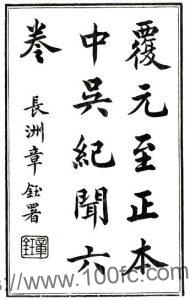 覆元至正本
中吳紀聞六
卷
長洲章鈺署
章鈺
://www.100fc.com